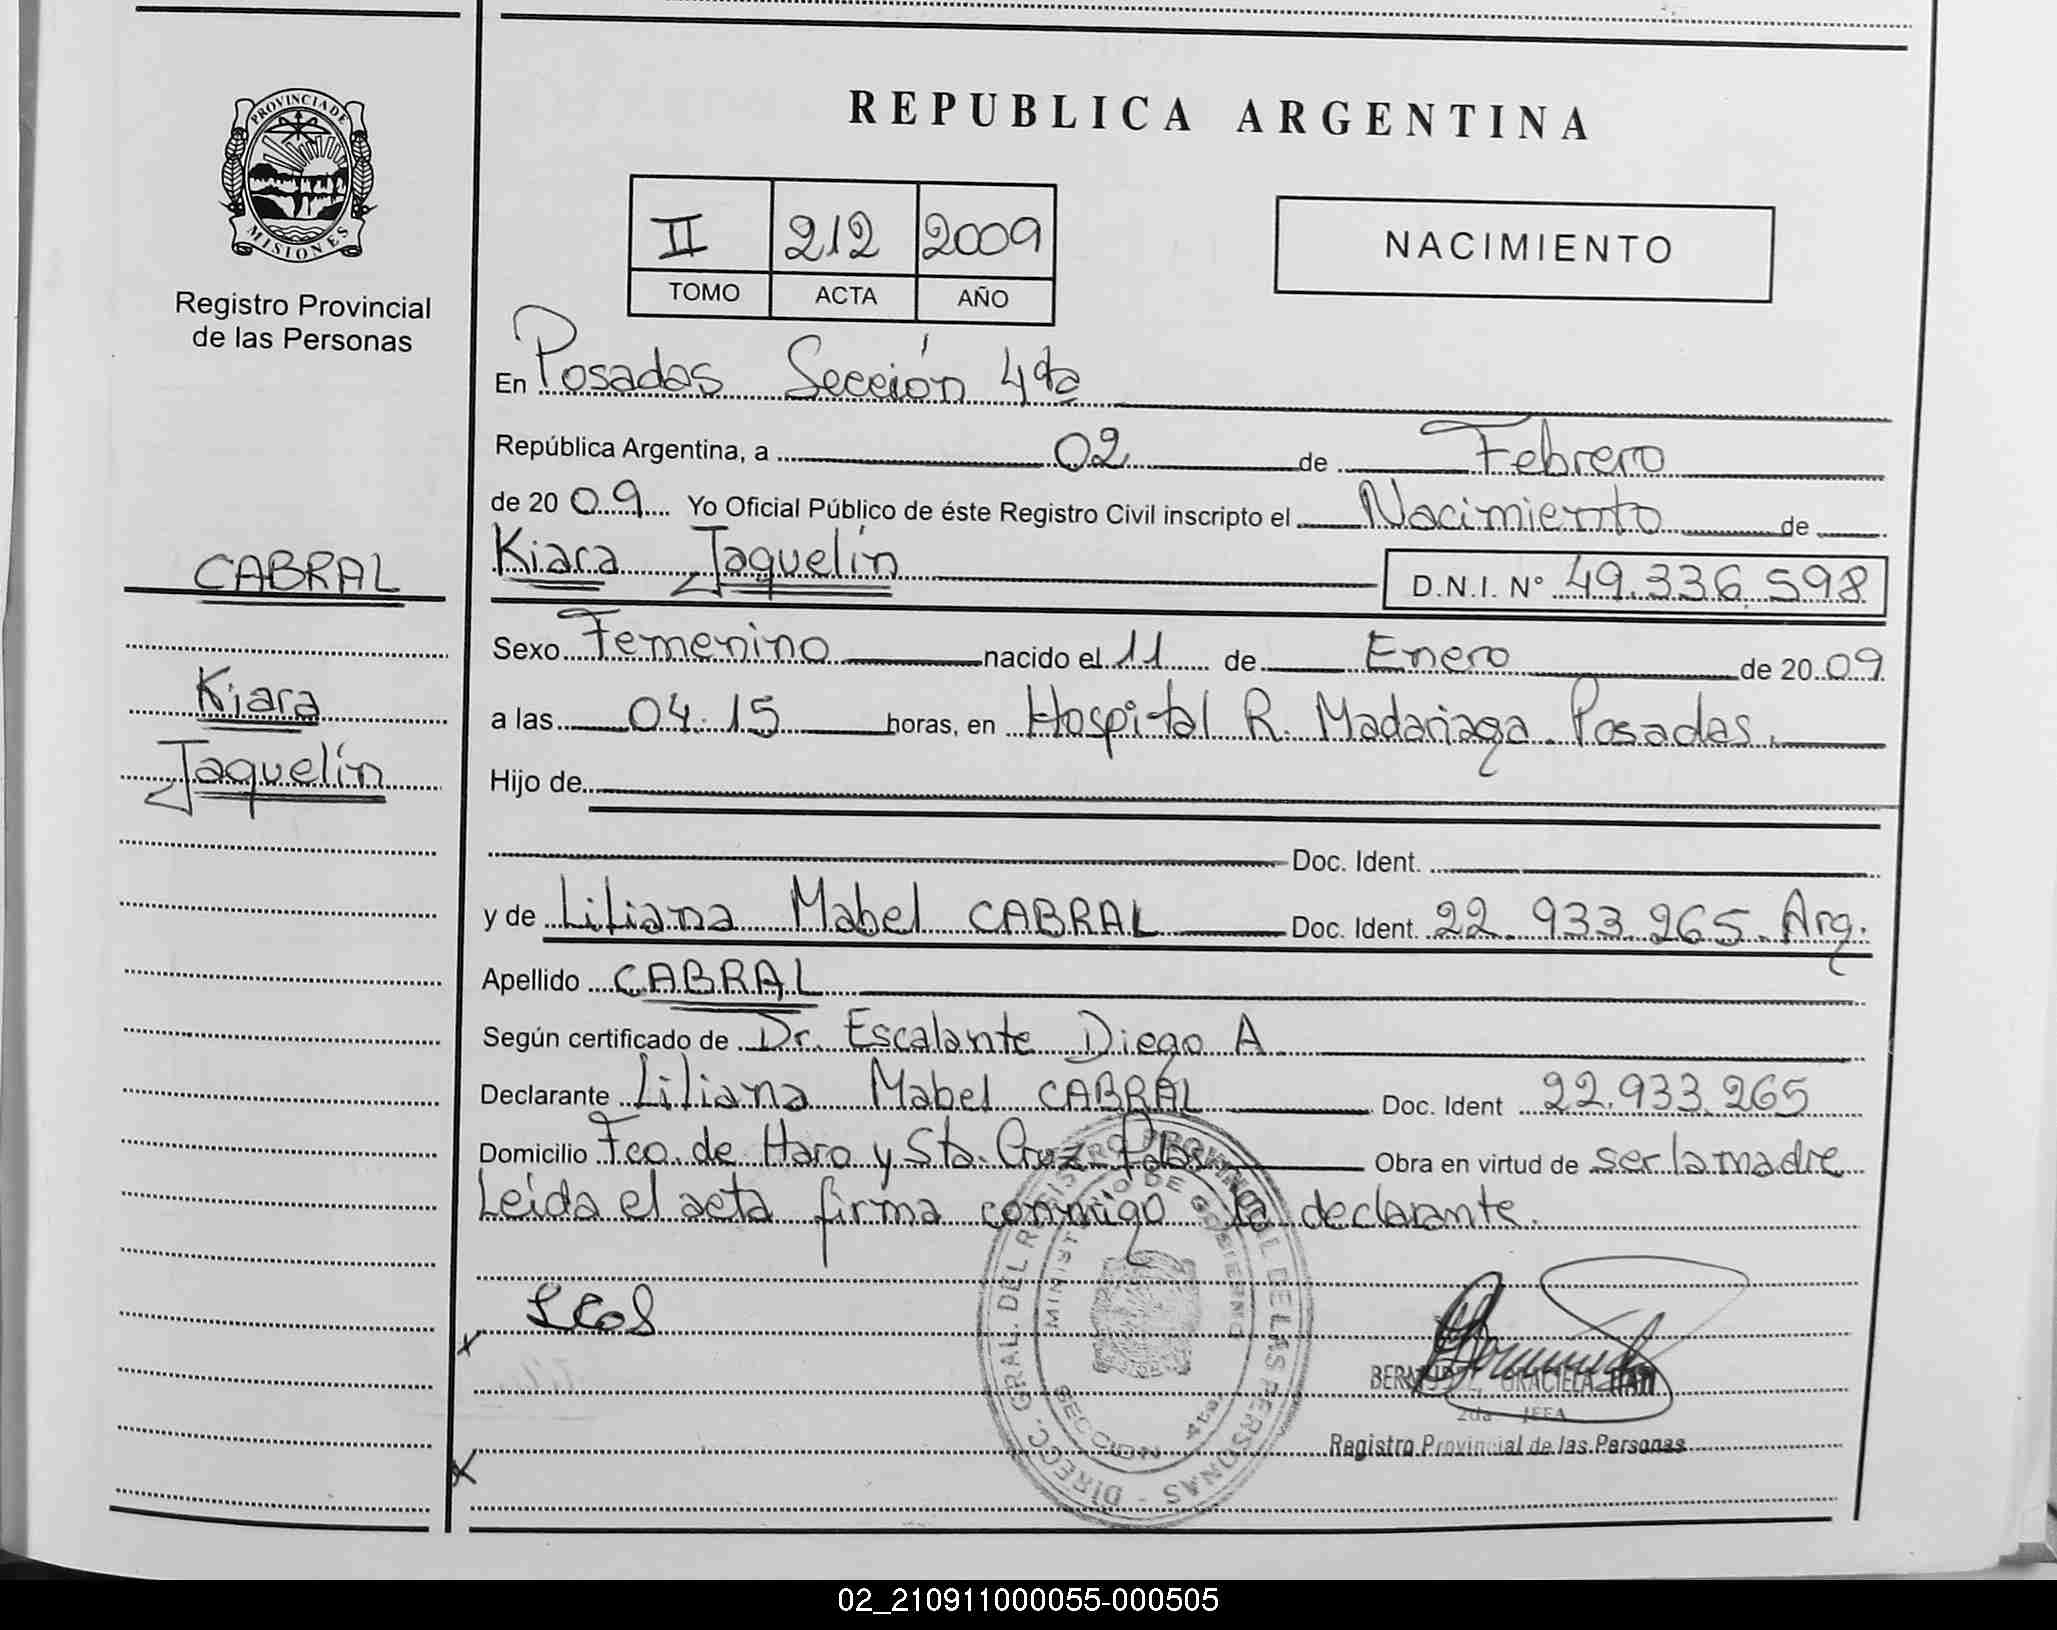 REPUBLICA ARGENTINA
PROVINCIA DE
MISIONES
Registro Provincial
de las Personas
II 212 2009
TOMO ACTA AÑO
NACIMIENTO
En Posadas Sección 4ta
República Argentina, a 02 de Febrero
de 20 09 Yo Oficial Público de éste Registro Civil inscripto el Nacimiento de
Kiara Jaquelín D.N.I. N° 49.336.598
CABRAL
Kiara
Jaquelín
Sexo Femenino nacido el 11 de Enero de 20 09
a las 04.15 horas, en Hospital R. Madariaga Posadas.
Hijo de
Doc. Ident.
y de Liliana Mabel CABRAL Doc. Ident. 22.933.265. Arg.
Apellido CABRAL
Según certificado de Dr. Escalante Diego A
Declarante Liliana Mabel CABRAL Doc. Ident 22.933.265
Domicilio Fco. de Haro y Sta. Cruz Pdas Obra en virtud de ser la madre
Leída el acta firma conmigo la declarante.
DIRECC. GRAL. DEL REGISTRO PROVINCIAL DE LAS PERSONAS -
MINISTERIO DE GOBIERNO
SECCION 4ta
GRACIELA
2da JEFA
Registro Provincial de las Personas
02_210911000055-000505